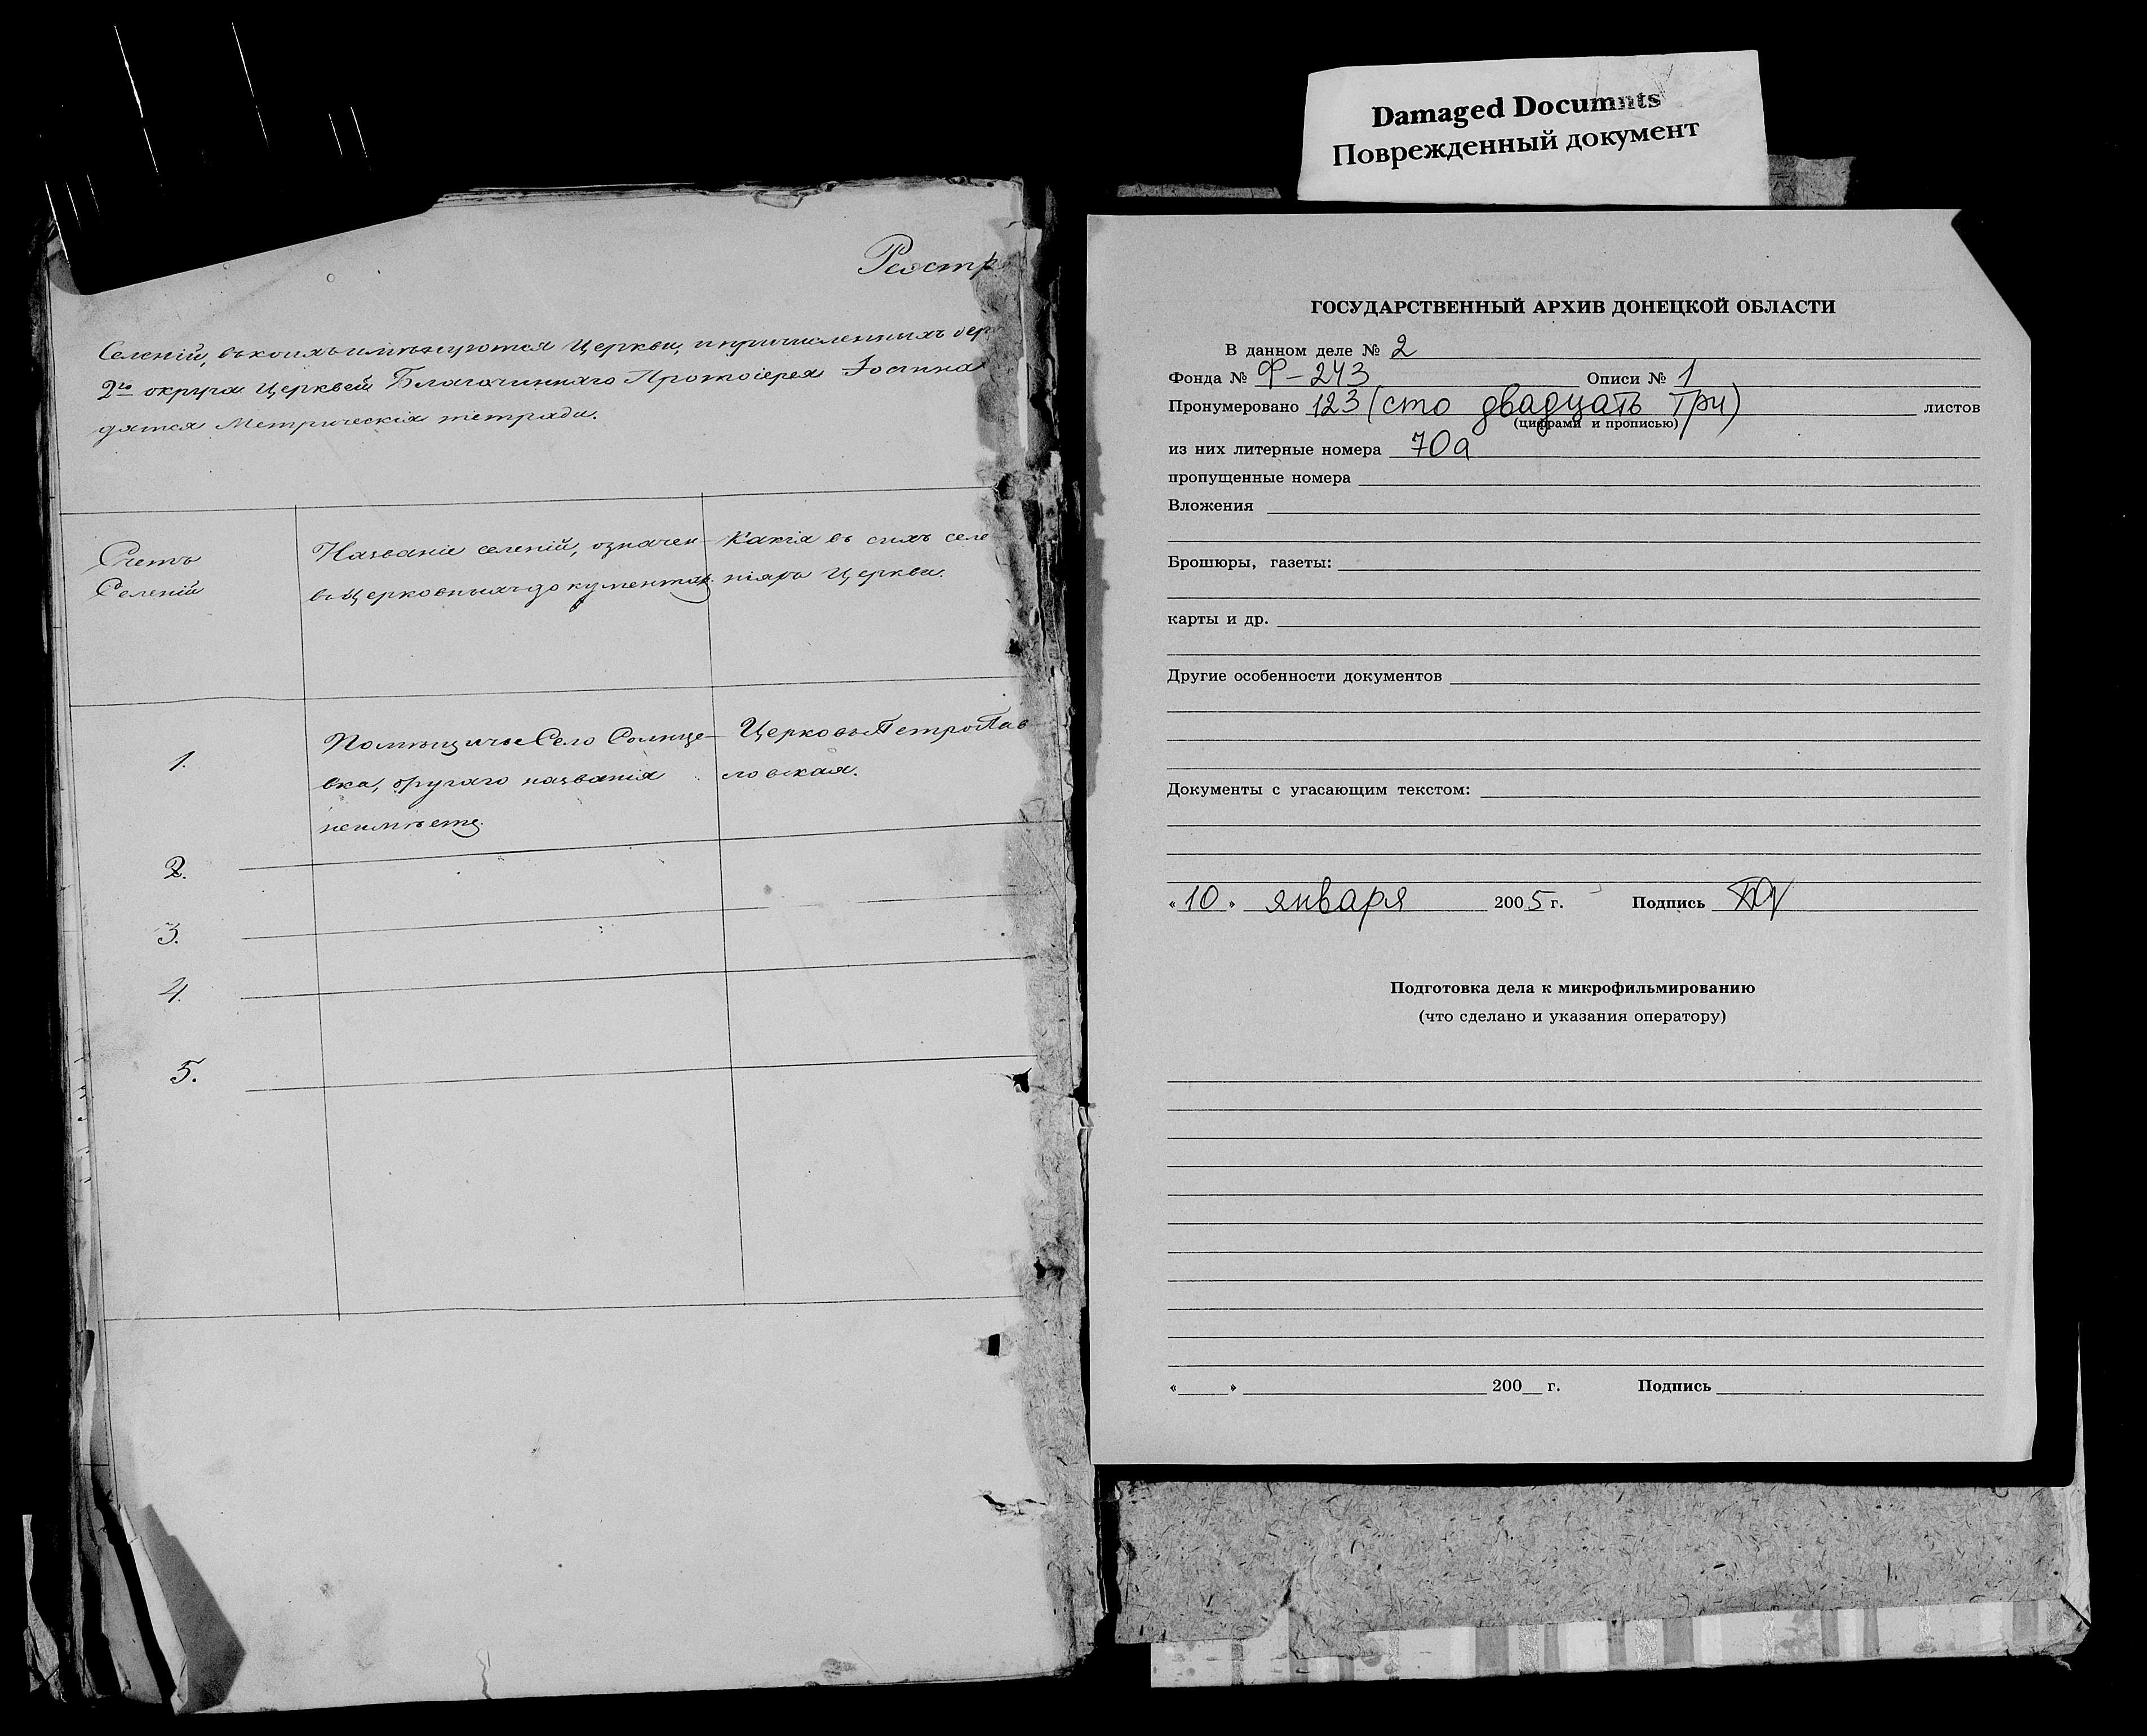 Damaged Documnts
Поврежденный документ
Реэстр
Селеній, въ коихъ имѣнуются Церкви, и причисленныхъ
2го округа Церквей Благочиннаго Протоіерея Іоанна
дятся Метрическія тетради.
Счетъ
Селеній
Названіе селеній, означен
въ Церковныхъ документах.
Какія въ сихъ селе
ніяхъ Церкви.
1.
Помѣщичье Село Солнце-
вка, другаго названія
неимѣетъ.
Церковь ПетроПав
ловская.
2.
3.
4.
5.
ГОСУДАРСТВЕННЫЙ АРХИВ ДОНЕЦКОЙ ОБЛАСТИ
В данном деле № 2
Фонда № Ф-243 Описи № 1
Пронумеровано 123 (сто двадцать три) листов
(цифрами и прописью)
из них литерные номера 70а
пропущенные номера
Вложения
Брошюры, газеты:
карты и др.
Другие особенности документов
Документы с угасающим текстом:
« 10 » января 2005 г. Подпись
Подготовка дела к микрофильмированию
(что сделано и указания оператору)
« » 200 г. Подпись